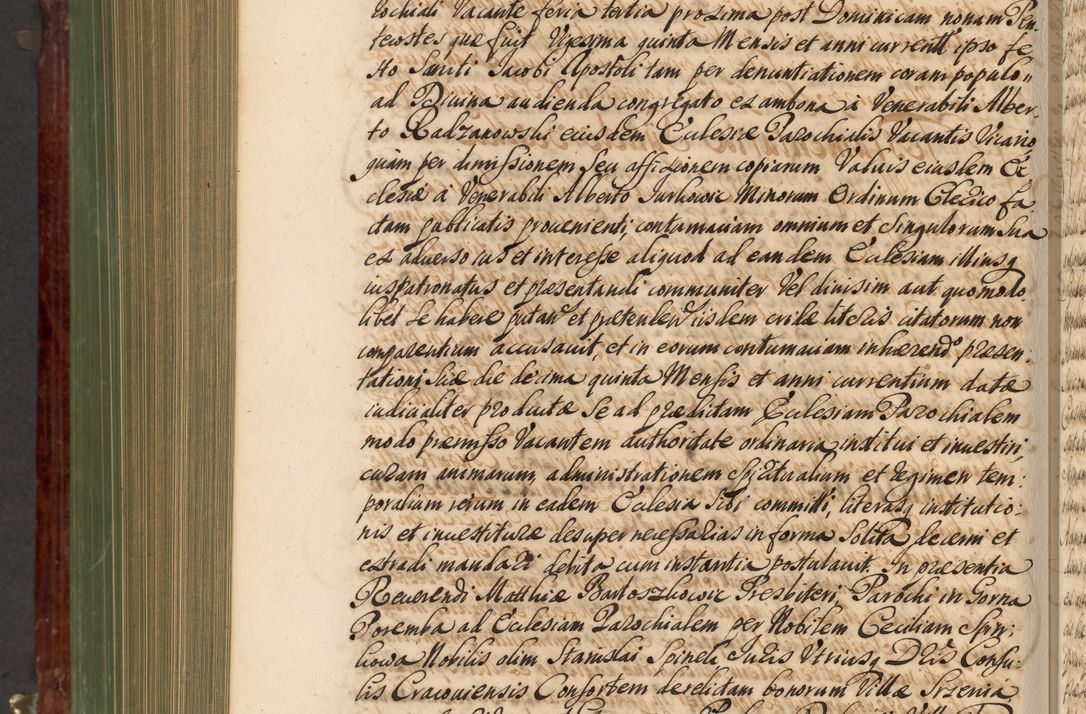 rochiali Vacante feria tertia proxima post Dominicam nonam Pen-
tecostes quæ fuit Vigesima quinta Mensis et anni currentt ipso fe
sto Sancti Jacobi Apostoli tam per denuntiationem coram populo„
ad Divina audienda congregato ex ambona à Venerabili Alber-
to Radzanowski eiusdem Ecclesiæ Parochialis Vacantis Vicario
quàm per dimissionem seu affixionem copiarum Valvis eiusdem Ec
clesiæ à Venerabili Alberto Jurkowic Minorum Ordinum Clerico fa
ctam publicatis provenienti, contumaciam omnium et singulorum sua
ex adverso ius et interesse aliquod ad eandem Ecclesiam illiusq
iuspatronatus et præsentandi communiter Vel divisim aut quomodo
libet se habere putan et prætenden iisdem cridæ literis citatorum non
comparentium accusavit, et in eorum contumaciam inhærendo præsen-
tationi suæ die decima quinta Mensis et anni currentium datæ
iudicialiter productæ se ad prædictam Ecclesiam Parochialem
modo præmisso Vacantem authoritate ordinaria institui et investiri,
curam animarum, administrationem spiritualium et regimen tem:
poralium rerum in eadem Ecclesia sibi committi, literasq institutio:
nis et investituræ desuper necessarias in forma solita decerni et
extradi mandari debita cum instantia postulavit. In præsentia
Reverendi Matthiæ Bartoszkowic Presbiteri, Parochi in Gorna
Poremba ad Ecclesiam Parochialem per Nobilem Ceciliam Spin:
kowa Nobilis olim Stanislai Spinek Juris Utriusq Dris Consu-
lis Cracoviensis Consortem derelictam bonorum Villæ Srzenia